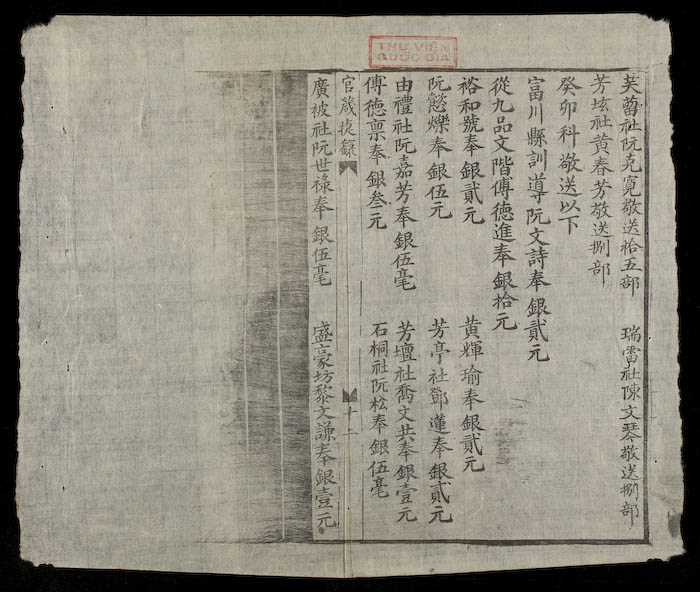 THƯ VIỆN
QUỐC GIA
芙蒥社阮克寬敬送拾五部 瑞雷社陳文琴敬送捌部
芳垓社黄春芳敬送捌部
癸卯科敬送以下
富川縣訓導阮文詩奉銀貳元
從九品文階傅德進奉銀拾元
裕和號奉銀貳元 黄輝瑜奉銀貳元
阮懿爍奉銀伍元 芳亭社鄧蓮奉銀貳元
由禮社阮嘉芳奉銀伍毫 芳壇社喬文共奉銀壹元
傅德禀奉銀叁元 石桐社阮松奉銀伍毫
官箴捷錄 十二
廣被社阮世祿奉銀伍毫 盛豪坊黎文謙奉銀壹元